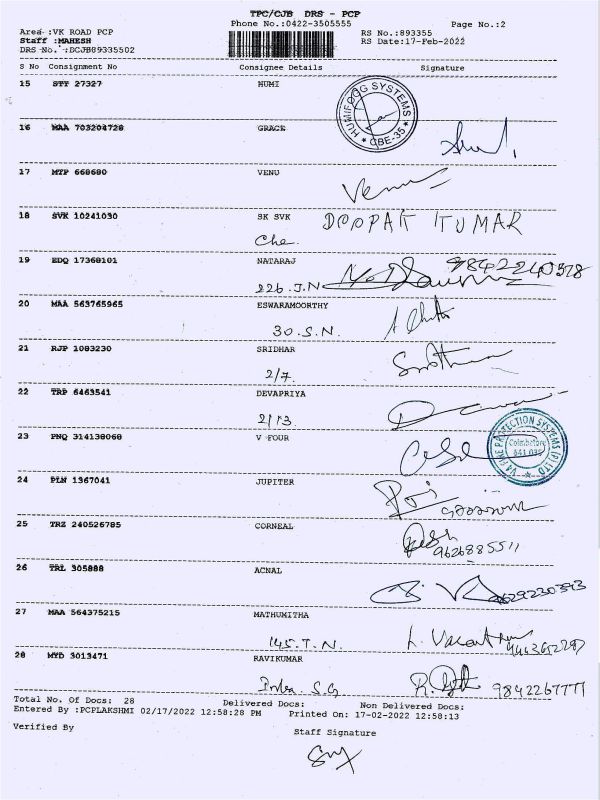 TPC/CJB DRS - PCP
Phone No.:0422-3505555 Page No.:2
Area :VK ROAD PCP RS No.:893355
Staff :MAHESH RS Date:17-Feb-2022
DRS No. :DCJB89335502
S No Consignment No Consignee Details Signature
15 STT 27327 HUMI
HUMIFOG SYSTEMS CBE-35
16 MAA 703204728 GRACE
17 MTP 668680 VENU Venu
18 SVK 10241030 SK SVK DEEPAK KUMAR
Che.
19 EDQ 17368101 NATARAJ
226.J.N
20 MAA 563765965 ESWARAMOORTHY
30.S.N.
21 RJP 1083230 SRIDHAR
2/7.
22 TRP 6463541 DEVAPRIYA
2/13
23 PNQ 314138068 V FOUR
V4 FIRE PROTECTION SYSTEMS (P) LTD Coimbatore 641 035
24 PLN 1367041 JUPITER
25 TRZ 240526785 CORNEAL
9626885511
26 TRL 305888 ACNAL
9629230393
27 MAA 564375215 MATHUMITHA
145.T.N.
28 MYD 3013471 RAVIKUMAR
9842267771
Total No. Of Docs: 28 Delivered Docs: Non Delivered Docs:
Entered By :PCPLAKSHMI 02/17/2022 12:58:28 PM Printed On: 17-02-2022 12:58:13
Verified By Staff Signature